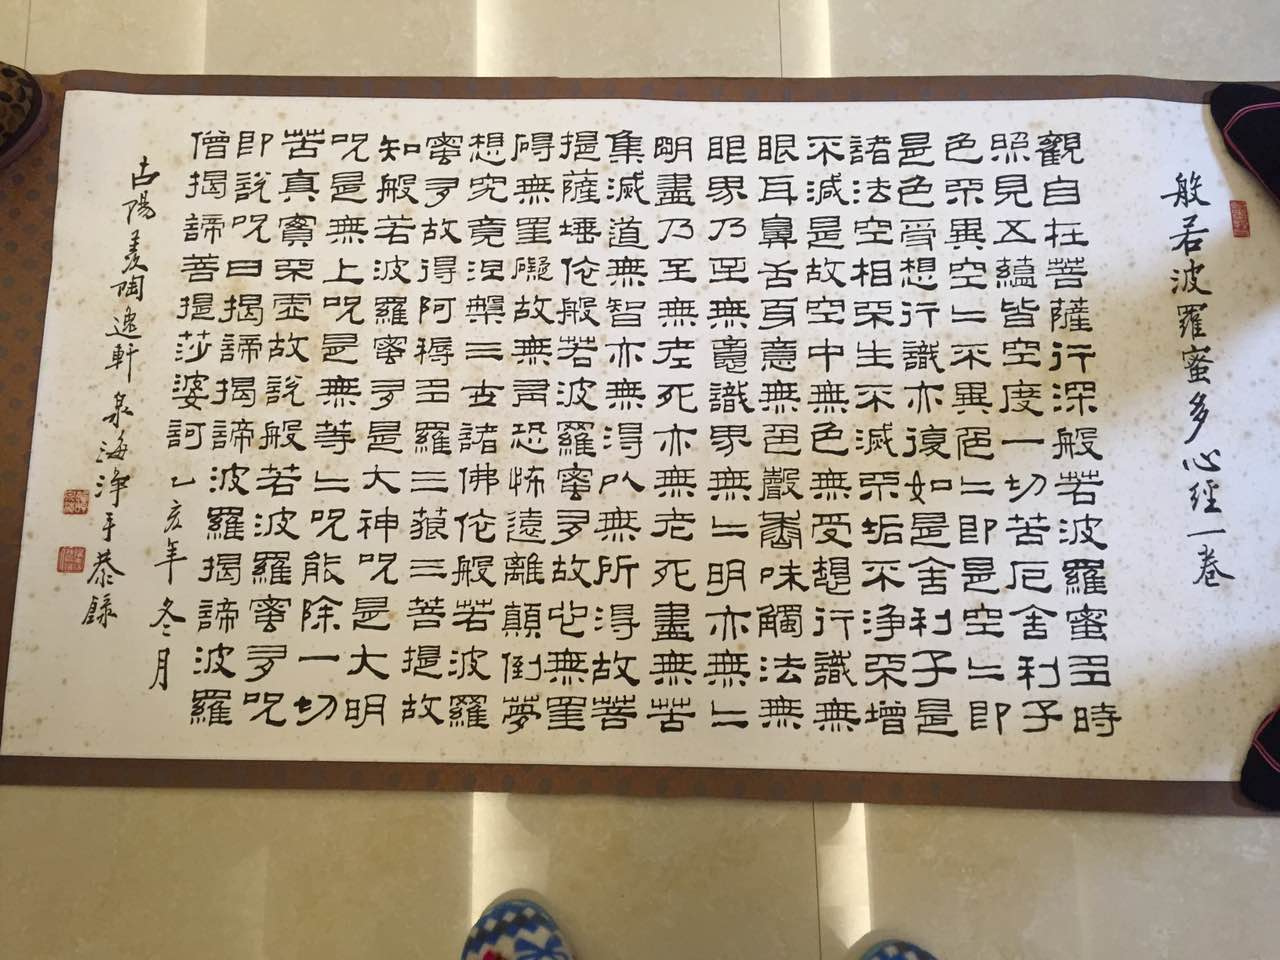 般若波羅蜜多心經一卷
觀自在菩薩行深般若波羅蜜多時
照見五蘊皆空度一切苦厄舍利子
色不異空〻不異色〻即是空〻即
是色受想行識亦復如是舍利子是
諸法空相不生不滅不垢不淨不增
不減是故空中無色無受想行識無
眼耳鼻舌身意無色聲香味觸法無
眼界乃至無意識界無〻明亦無〻
明盡乃至無老死亦無老死盡無苦
集滅道無智亦無得以無所得故菩
提薩埵依般若波羅蜜多故心無罣
碍無罣礙故無有恐怖遠離顛倒夢
想究竟涅槃三世諸佛依般若波羅
蜜多故得阿耨多羅三藐三菩提故
知般若波羅蜜多是大神咒是大明
咒是無上咒是無等〻咒能除一切
苦真實不虛故說般若波羅蜜多咒
即說咒曰揭諦揭諦波羅揭諦波羅
僧揭諦菩提莎婆訶乙亥年冬月
古陽羨陶逸軒泉海淨手恭錄